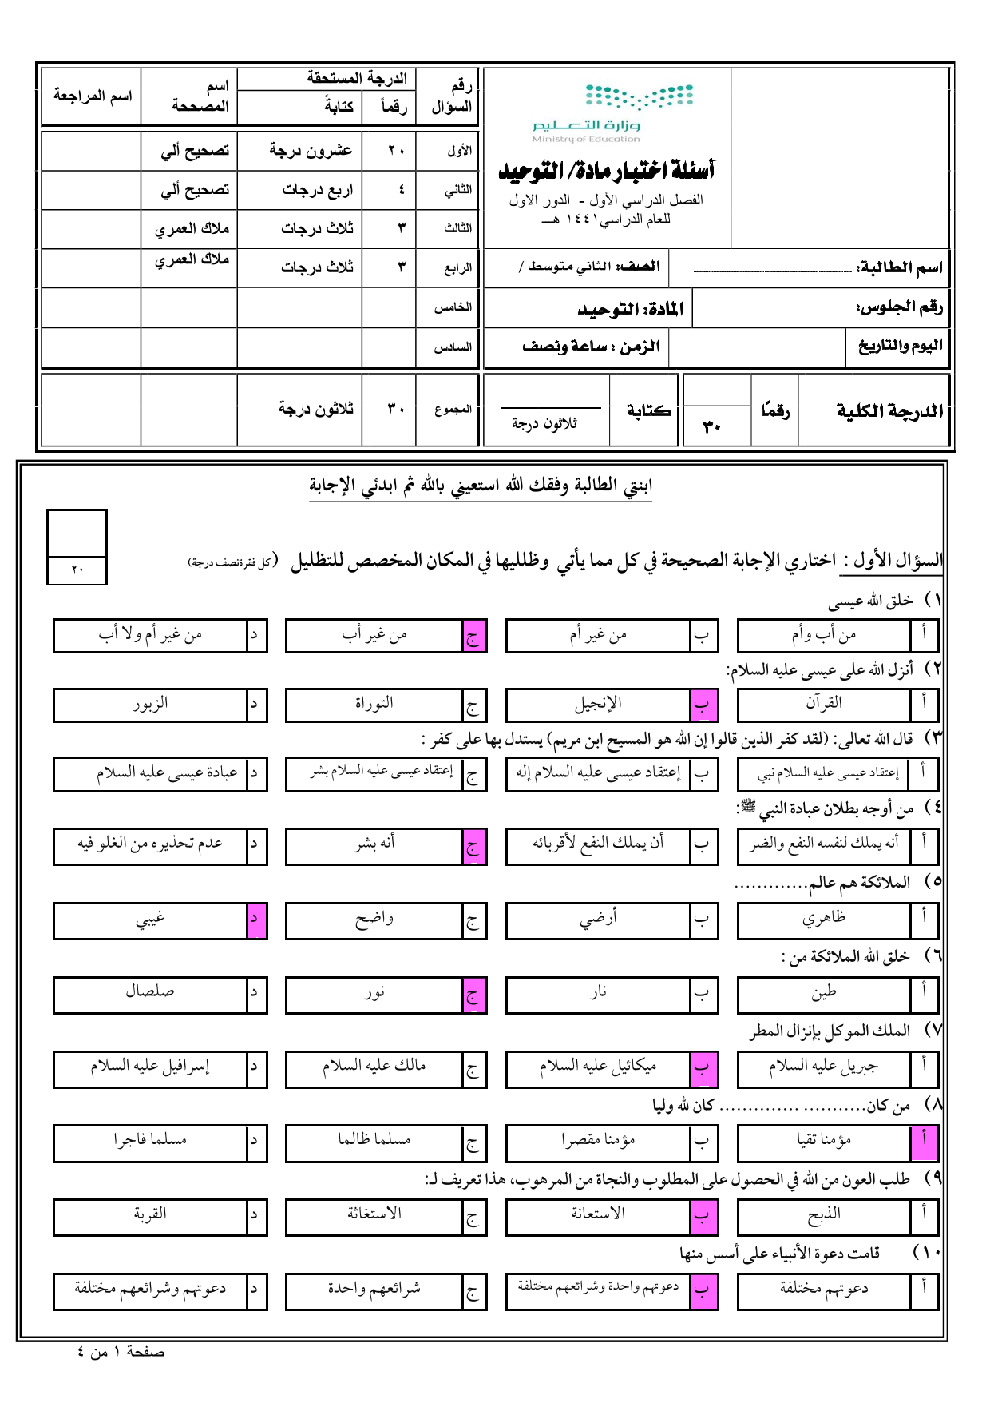 وزارة التعليم
Ministry of Education
أسئلة اختبار مادة/ التوحيد
الفصل الدراسي الأول - الدور الاول
للعام الدراسي ١٤٤١ هـ
اسم الطالبة: الصف: الثاني متوسط /
رقم الجلوس: المادة: التوحيد
اليوم والتاريخ الزمن : ساعة ونصف
الدرجة الكلية رقمًا ٣٠ كتابة ثلاثون درجة
رقم السؤال الدرجة المستحقة اسم المصححة اسم المراجعة
رقماً كتابةً
الأول ٢٠ عشرون درجة تصحيح ألي
الثاني ٤ اربع درجات تصحيح ألي
الثالث ٣ ثلاث درجات ملاك العمري
الرابع ٣ ثلاث درجات ملاك العمري
الخامس
السادس
المجموع ٣٠ ثلاثون درجة
ابنتي الطالبة وفقك الله استعيني بالله ثم ابدئي الإجابة
٢٠
السؤال الأول : اختاري الإجابة الصحيحة في كل مما يأتي وظلليها في المكان المخصص للتظليل (كل فقرة نصف درجة)
١) خلق الله عيسى
أ من أب وأم ب من غير أم ج من غير أب د من غير أم ولا أب
٢) أنزل الله على عيسى عليه السلام:
أ القرآن ب الإنجيل ج التوراة د الزبور
٣) قال الله تعالى: (لقد كفر الذين قالوا إن الله هو المسيح ابن مريم) يستدل بها على كفر :
أ إعتقاد عيسى عليه السلام نبي ب إعتقاد عيسى عليه السلام إله ج إعتقاد عيسى عليه السلام بشر د عبادة عيسى عليه السلام
٤) من أوجه بطلان عبادة النبي ﷺ:
أ أنه يملك لنفسه النفع والضر ب أن يملك النفع لأقربائه ج أنه بشر د عدم تحذيره من الغلو فيه
٥) الملائكة هم عالم.............
أ ظاهري ب أرضي ج واضح د غيبي
٦) خلق الله الملائكة من :
أ طين ب نار ج نور د صلصال
٧) الملك الموكل بإنزال المطر
أ جبريل عليه السلام ب ميكائيل عليه السلام ج مالك عليه السلام د إسرافيل عليه السلام
٨) من كان........... .............. كان لله وليا
أ مؤمنا تقيا ب مؤمنا مقصرا ج مسلما ظالما د مسلما فاجرا
٩) طلب العون من الله في الحصول على المطلوب والنجاة من المرهوب، هذا تعريف لـ:
أ الذبح ب الاستعانة ج الاستغاثة د القربة
١٠) قامت دعوة الأنبياء على أسس منها
أ دعوتهم مختلفة ب دعوتهم واحدة وشرائعهم مختلفة ج شرائعهم واحدة د دعوتهم وشرائعهم مختلفة
صفحة ١ من ٤